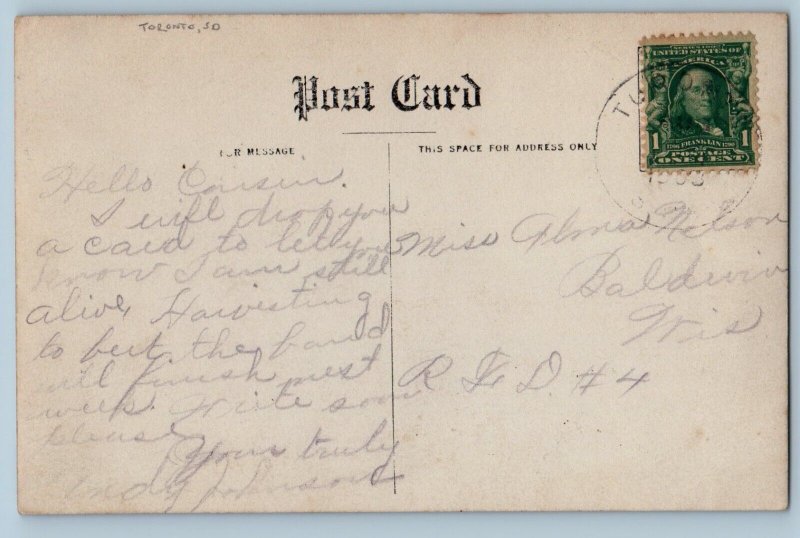 TORONTO, SD
SERIES 1902
UNITED STATES OF
AMERICA
1 1
1706 FRANKLIN 1790
POSTAGE
ONE CENT
Post Card
FOR MESSAGE
THIS SPACE FOR ADDRESS ONLY
Hello Cousin.
I will drop you
a card to let you
know I am still
alive, Harvesting
to beet the band
will finish next
week. Write soon
please
Your truly
Andy Johnson
Miss Alma Nelson
Baldwin
Wis
R. F. D. #4